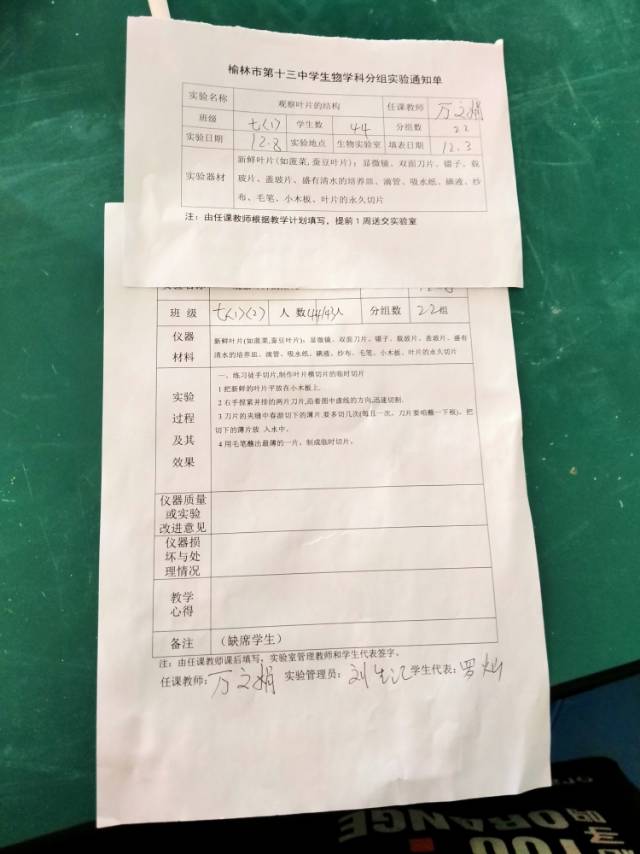 榆林市第十三中学生物学科分组实验通知单
实验名称 观察叶片的结构 任课教师 万文娟
班级 七(1) 学生数 44 分组数 22
实验日期 12.8 实验地点 生物实验室 填表日期 12.3
实验器材 新鲜叶片(如菠菜,蚕豆叶片);显微镜、双面刀片、镊子、载
玻片、盖玻片、盛有清水的培养皿、滴管、吸水纸、碘液、纱
布、毛笔、小木板、叶片的永久切片
注:由任课教师根据教学计划填写,提前1周送交实验室
班 级 七(1)(2) 人 数 44/43人 分组数 22组
仪器
材料
新鲜叶片(如菠菜,蚕豆叶片);显微镜、双面刀片、镊子、载玻片、盖玻片、盛有
清水的培养皿、滴管、吸水纸、碘液、纱布、毛笔、小木板、叶片的永久切片
实验
过程
及其
效果
一、练习徒手切片,制作叶片横切片的临时切片
1 把新鲜的叶片平放在小木板上.
2 右手捏紧并排的两片刀片,沿着图中虚线的方向,迅速切割.
3 刀片的夹缝中存游切下的薄片.要多切几次(每且一次、刀片要蘸一下板)。把
切下的薄片放 入水中。
4 用毛笔蘸出最薄的一片、制成临时切片。
仪器质量
或实验
改进意见
仪器损
坏与处
理情况
教学
心得
备注 (缺席学生)
注:由任课教师课后填写,实验室管理教师和学生代表签字。
任课教师:万文娟 实验管理员:刘生汇 学生代表:罗灿
ORANGE